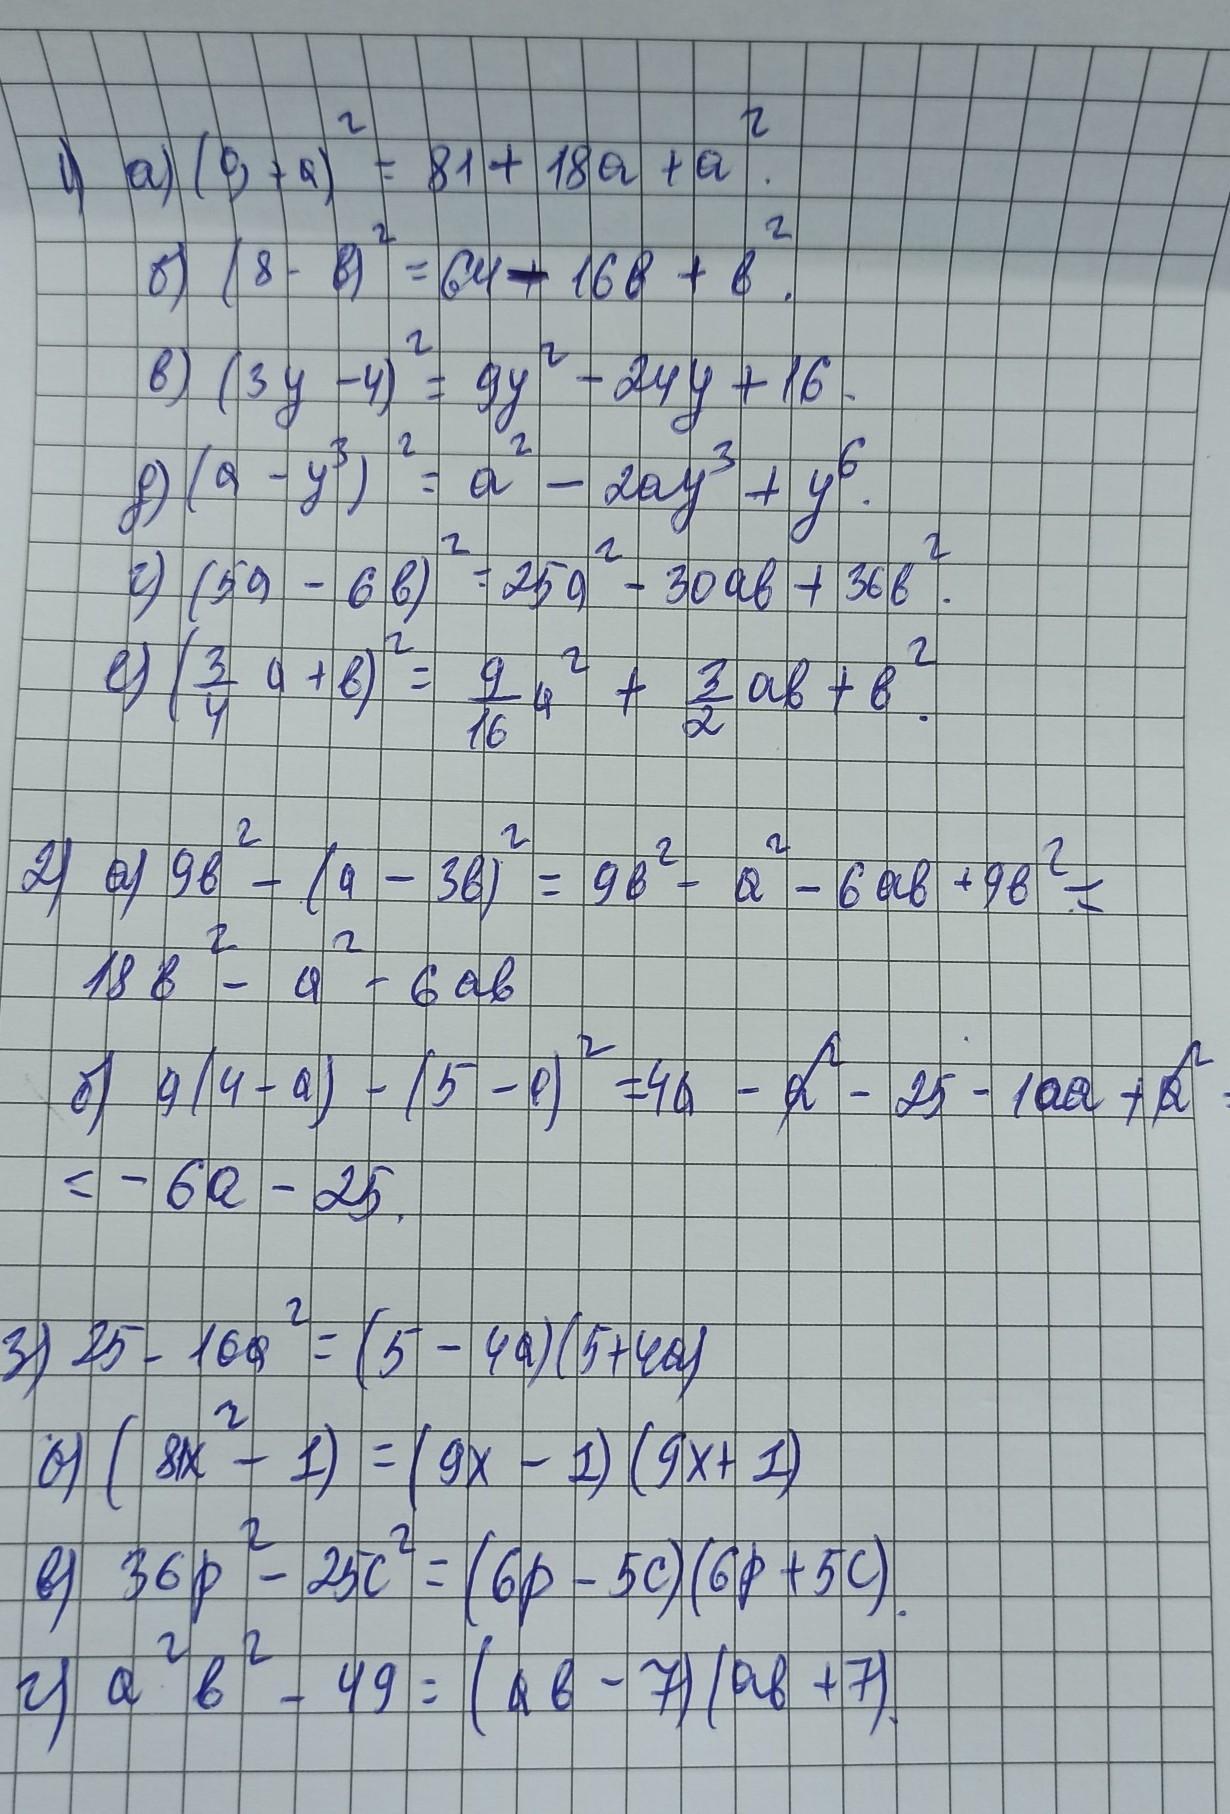 1) а) (9 + a)² = 81 + 18a + a².
б) (8 - в)² = 64 - 16в + в².
в) (3y - 4)² = 9y² - 24y + 16.
д) (a - y³)² = a² - 2ay³ + y⁶.
г) (5a - 6в)² = 25a² - 30aв + 36в².
е) (3/4 a + в)² = 9/16 a² + 3/2 aв + в².
2) а) 9в² - (a - 3в)² = 9в² - a² - 6aв + 9в² =
18в² - a² - 6aв
б) a(4 - a) - (5 - a)² = 4a - a² - 25 - 10a + a² =
= - 6a - 25.
3) 25 - 16a² = (5 - 4a)(5 + 4a)
б) (81x² - 1) = (9x - 1)(9x + 1)
в) 36p² - 25c² = (6p - 5c)(6p + 5c).
г) a²в² - 49 = (aв - 7)(aв + 7).